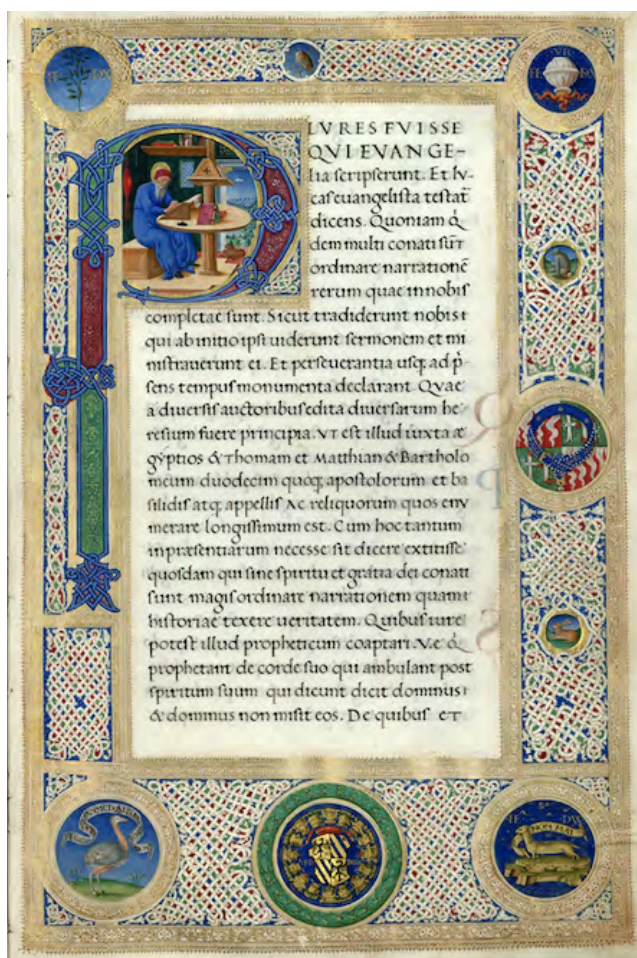 FE DVX
FE DVX
PLVRES FVISSE
QVI EVANGE-
lia scripserunt. Et lv-
cas euangelista testat̄
dicens. Quoniam q̇
dem multi conati sūt
ordinare narrationē
rerum quae in nobis
completae sunt. Sicut tradiderunt nobis i
qui ab initio ipsi uiderunt sermonem et mi
nistrauerunt ei. Et perseuerantia usq; ad p̄
sens tempus monumenta declarant. Qvae
a diuersis auctoribus edita diuersarum he
resium fuere principia. VT est illud iuxta æ
gyptios & Thomam et Matthian & Bartholo
meum duodecim quoq; apostolorum et ba
silidis atq; appellis Ac reliquorum quos env
merare longissimum est. Cum hoc tantum
in præsentiarum necesse sit dicere extitisse
quosdam qui sine spiritu et gratia dei conati
sunt magis ordinare narrationem quam i
historiae texere ueritatem. Quibus iure
potest illud propheticum coaptari. Ve q̇
prophetant de corde suo qui ambulant post
spiritum suum qui dicunt dicit dominus i
& dominus non misit eos. De quibus et
FE DVX
NON MAI